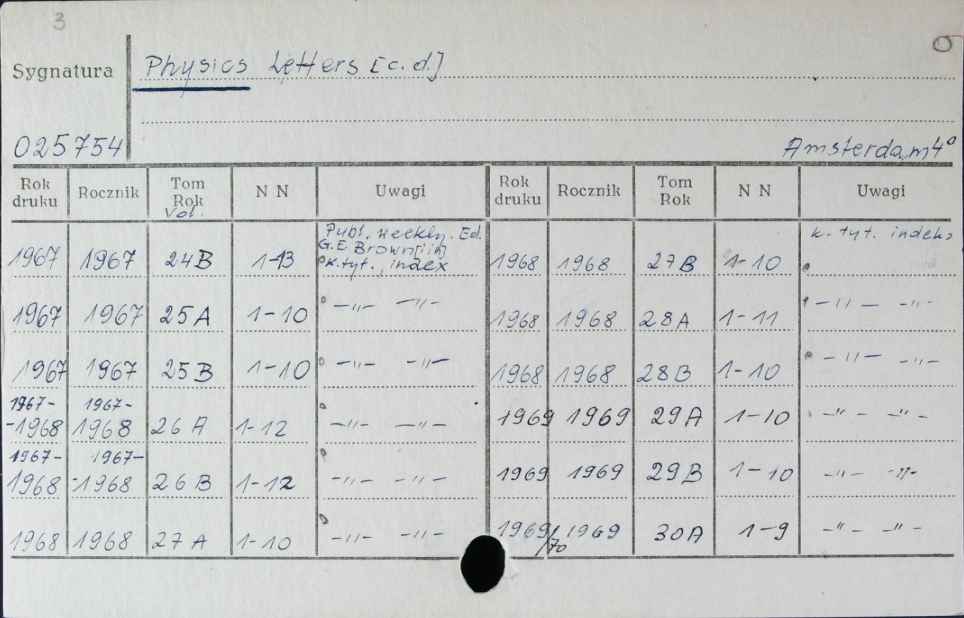 3
Sygnatura Physics Letters [c.d.]
025754 Amsterdam 4°
Rok druku Rocznik Tom Rok Vol. N N Uwagi Rok druku Rocznik Tom Rok N N Uwagi
Publ. weekly. Ed.
G.E. Brown [i in]
1967 1967 24B 1-13 k. tyt., index
1967 1967 25A 1-10 -"- -"-
1967 1967 25B 1-10 -"- -"-
1967- 1967-
-1968 1968 26A 1-12 -"- -"-
1967- 1967-
1968 -1968 26B 1-12 -"- -"-
1968 1968 27A 1-10 -"- -"-
k. tyt. indeks
1968 1968 27B 1-10
1968 1968 28A 1-11 -"- -"-
1968 1968 28B 1-10 -"- -"-
1969 1969 29A 1-10 -"- -"-
1969 1969 29B 1-10 -"- -"-
1969/70 1969 30A 1-9 -"- -"-